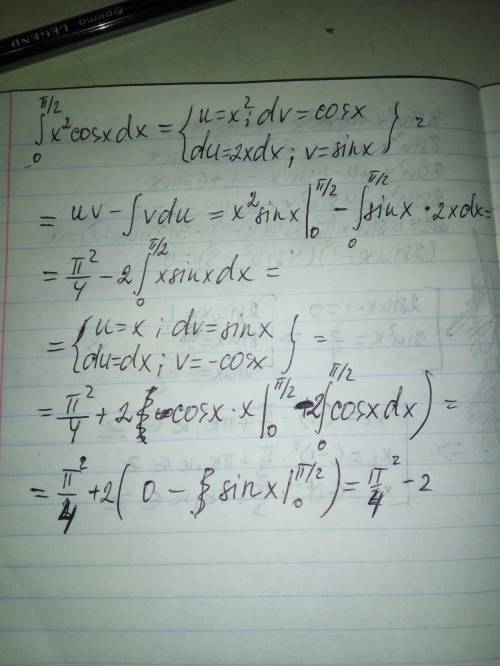 Optima LEGEND
∫₀^{π/2} x² cosx dx = { u = x²; dv = cosx
du = 2xdx; v = sinx } =
= uv - ∫vdu = x² sinx |₀^{π/2} - ∫₀^{π/2} sinx · 2xdx =
= π²/4 - 2 ∫₀^{π/2} x sinx dx =
= { u = x; dv = sinx
du = dx; v = -cosx } =
= π²/4 + 2( cosx · x |₀^{π/2} - ∫₀^{π/2} cosx dx) =
= π²/4 + 2( 0 - sinx |₀^{π/2} ) = π²/4 - 2